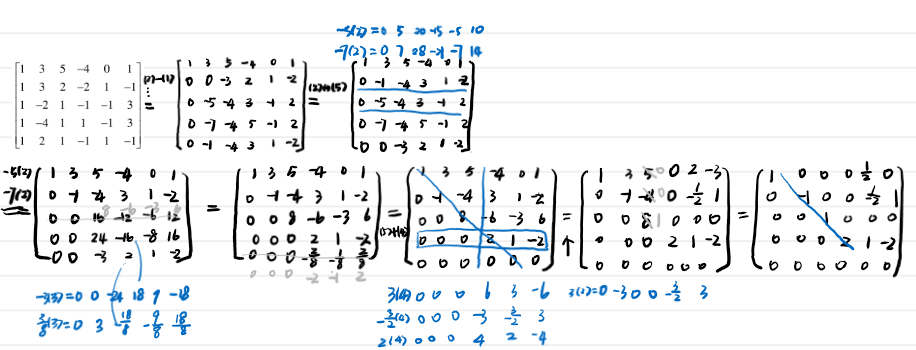 -5(2)=0 5 20 -15 -5 10
-7(2)=0 7 28 -21 -7 14
1 3 5 -4 0 1
1 3 2 -2 1 -1
1 -2 1 -1 -1 3
1 -4 1 1 -1 3
1 2 1 -1 1 -1
(2)-(1)
⋮
=
1 3 5 -4 0 1
0 0 -3 2 1 -2
0 -5 -4 3 -1 2
0 -7 -4 5 -1 2
0 -1 -4 3 1 -2
=
1 3 5 -4 0 1
0 -1 -4 3 1 -2
0 -5 -4 3 -1 2
0 -7 -4 5 -1 2
0 0 -3 2 1 -2
-5(2)
-7(2)
=
1 3 5 -4 0 1
0 -1 -4 3 1 -2
0 0 16 -12 -6 12
0 0 24 -16 -8 16
0 0 -3 2 1 -2
=
1 3 5 -4 0 1
0 -1 -4 3 1 -2
0 0 8 -6 -3 6
0 0 0 2 1 -2
0 0 0
=
1 3 5 -4 0 1
0 -1 -4 3 1 -2
0 0 8 -6 -3 6
0 0 0 2 1 -2
0 0 0 0 0 0
= ↑
1 3 5 0 2 -3
0 -1 0 0 -1/2 1
0 0 0 0 0
0 0 0 2 1 -2
0 0 0 0 0 0
=
1 0 0 0 1/2 0
0 -1 0 0 1
0 0 1 0 0 0
0 0 0 2 1 -2
0 0 0 0 0 0
-3(3)=0 0 -24 18 9 -18
3/8(3)=0 3 18/8 -9/8 18/8
3(4) 0 0 0 6 3 -6
-3/2(4) 0 0 0 -3 -3/2 3
2(4) 0 0 0 4 2 -4
3(2)=0 -3 0 0 -3/2 3